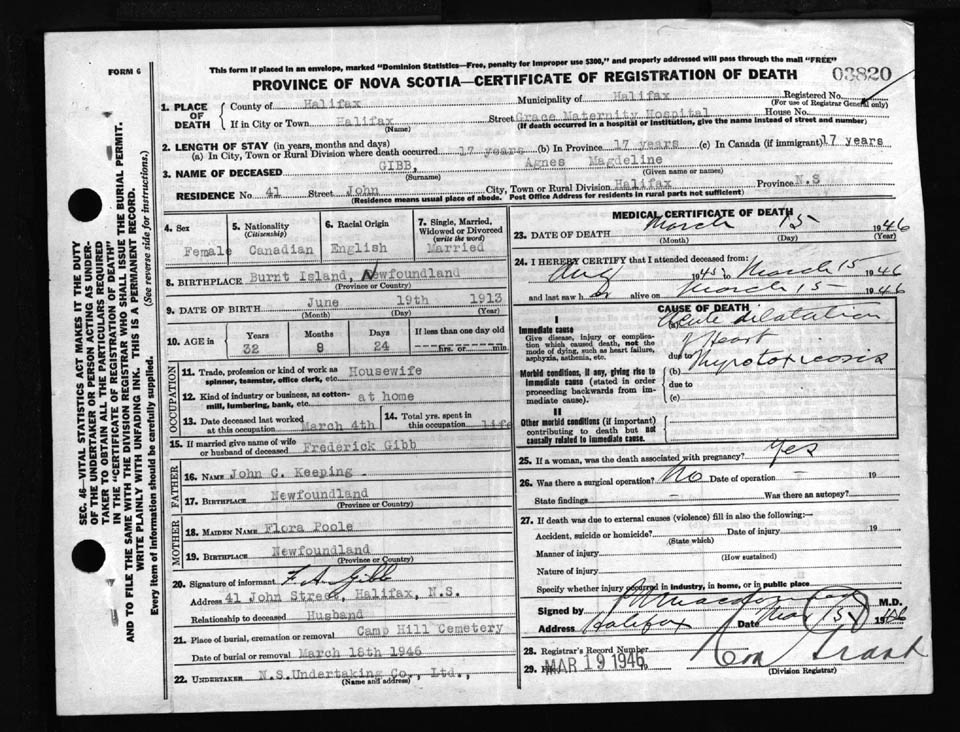 FORM 6
This form if placed in an envelope, marked "Dominion Statistics—Free, penalty for improper use $300," and properly addressed will pass through the mail "FREE"
PROVINCE OF NOVA SCOTIA—CERTIFICATE OF REGISTRATION OF DEATH
03820
Registered No.
(For use of Registrar General only)
1. PLACE OF DEATH
County of Halifax Municipality of Halifax
If in City or Town Halifax Street Grace Maternity Hospital House No.
(Name) (If death occurred in a hospital or institution, give the name instead of street and number)
2. LENGTH OF STAY (in years, months and days)
(a) In City, Town or Rural Division where death occurred 17 years (b) In Province 17 years (c) In Canada (if immigrant) 17 years
3. NAME OF DECEASED GIBB, Agnes Magdeline
(Surname) (Given name or names)
RESIDENCE No. 41 Street John City, Town or Rural Division Halifax Province N.S
(Residence means usual place of abode. Post Office Address for residents in rural parts not sufficient)
4. Sex Female
5. Nationality (Citizenship) Canadian
6. Racial Origin English
7. Single, Married, Widowed or Divorced (write the word) Married
8. BIRTHPLACE Burnt Island, Newfoundland
(Province or Country)
9. DATE OF BIRTH June 19th 1913
(Month) (Day) (Year)
10. AGE in Years 32 Months 8 Days 24 If less than one day old hrs. or min.
OCCUPATION
11. Trade, profession or kind of work as spinner, teamster, office clerk, etc. Housewife
12. Kind of industry or business, as cotton-mill, lumbering, bank, etc. at home
13. Date deceased last worked at this occupation March 4th
14. Total yrs. spent in this occupation life
15. If married give name of wife or husband of deceased Frederick Gibb
FATHER
16. NAME John C. Keeping
17. BIRTHPLACE Newfoundland
(Province or Country)
MOTHER
18. MAIDEN NAME Flora Poole
19. BIRTHPLACE Newfoundland
(Province or Country)
20. Signature of informant F. A. Gibb
Address 41 John Street, Halifax, N.S.
Relationship to deceased Husband
21. Place of burial, cremation or removal Camp Hill Cemetery
Date of burial or removal March 18th 1946
22. UNDERTAKER N.S.Undertaking Co., Ltd.,
(Name and address)
MEDICAL CERTIFICATE OF DEATH
23. DATE OF DEATH March 15 1946
(Month) (Day) (Year)
24. I HEREBY CERTIFY that I attended deceased from:
Aug 1945 to March 15 1946
and last saw her alive on March 15 1946
CAUSE OF DEATH
I
Immediate cause
Give disease, injury or complication which caused death, not the mode of dying, such as heart failure, asphyxia, asthenia, etc.
(a) Acute dilatation of Heart
due to
Morbid conditions, if any, giving rise to immediate cause (stated in order proceeding backwards from immediate cause).
(b) Thyrotoxicosis
due to
(c)
II
Other morbid conditions (if important) contributing to death but not causally related to immediate cause.
25. If a woman, was the death associated with pregnancy? Yes
26. Was there a surgical operation? No Date of operation - 19
State findings Was there an autopsy?
27. If death was due to external causes (violence) fill in also the following:—
Accident, suicide or homicide? Date of injury 19
(State which)
Manner of injury
(How sustained)
Nature of injury
Specify whether injury occurred in industry, in home, or in public place
Signed by M.D.
Address Halifax Date Mar 15 1946
28. Registrar's Record Number
29. MAR 19 1946
(Division Registrar)
SEC. 46—VITAL STATISTICS ACT MAKES IT THE DUTY
OF THE UNDERTAKER OR PERSON ACTING AS UNDER-
TAKER TO OBTAIN ALL THE PARTICULARS REQUIRED
IN THE "CERTIFICATE OF REGISTRATION OF DEATH"
AND TO FILE THE SAME WITH THE DIVISION REGISTRAR WHO SHALL ISSUE THE BURIAL PERMIT.
WRITE PLAINLY WITH UNFADING INK. THIS IS A PERMANENT RECORD.
Every item of information should be carefully supplied. (See reverse side for instructions.)